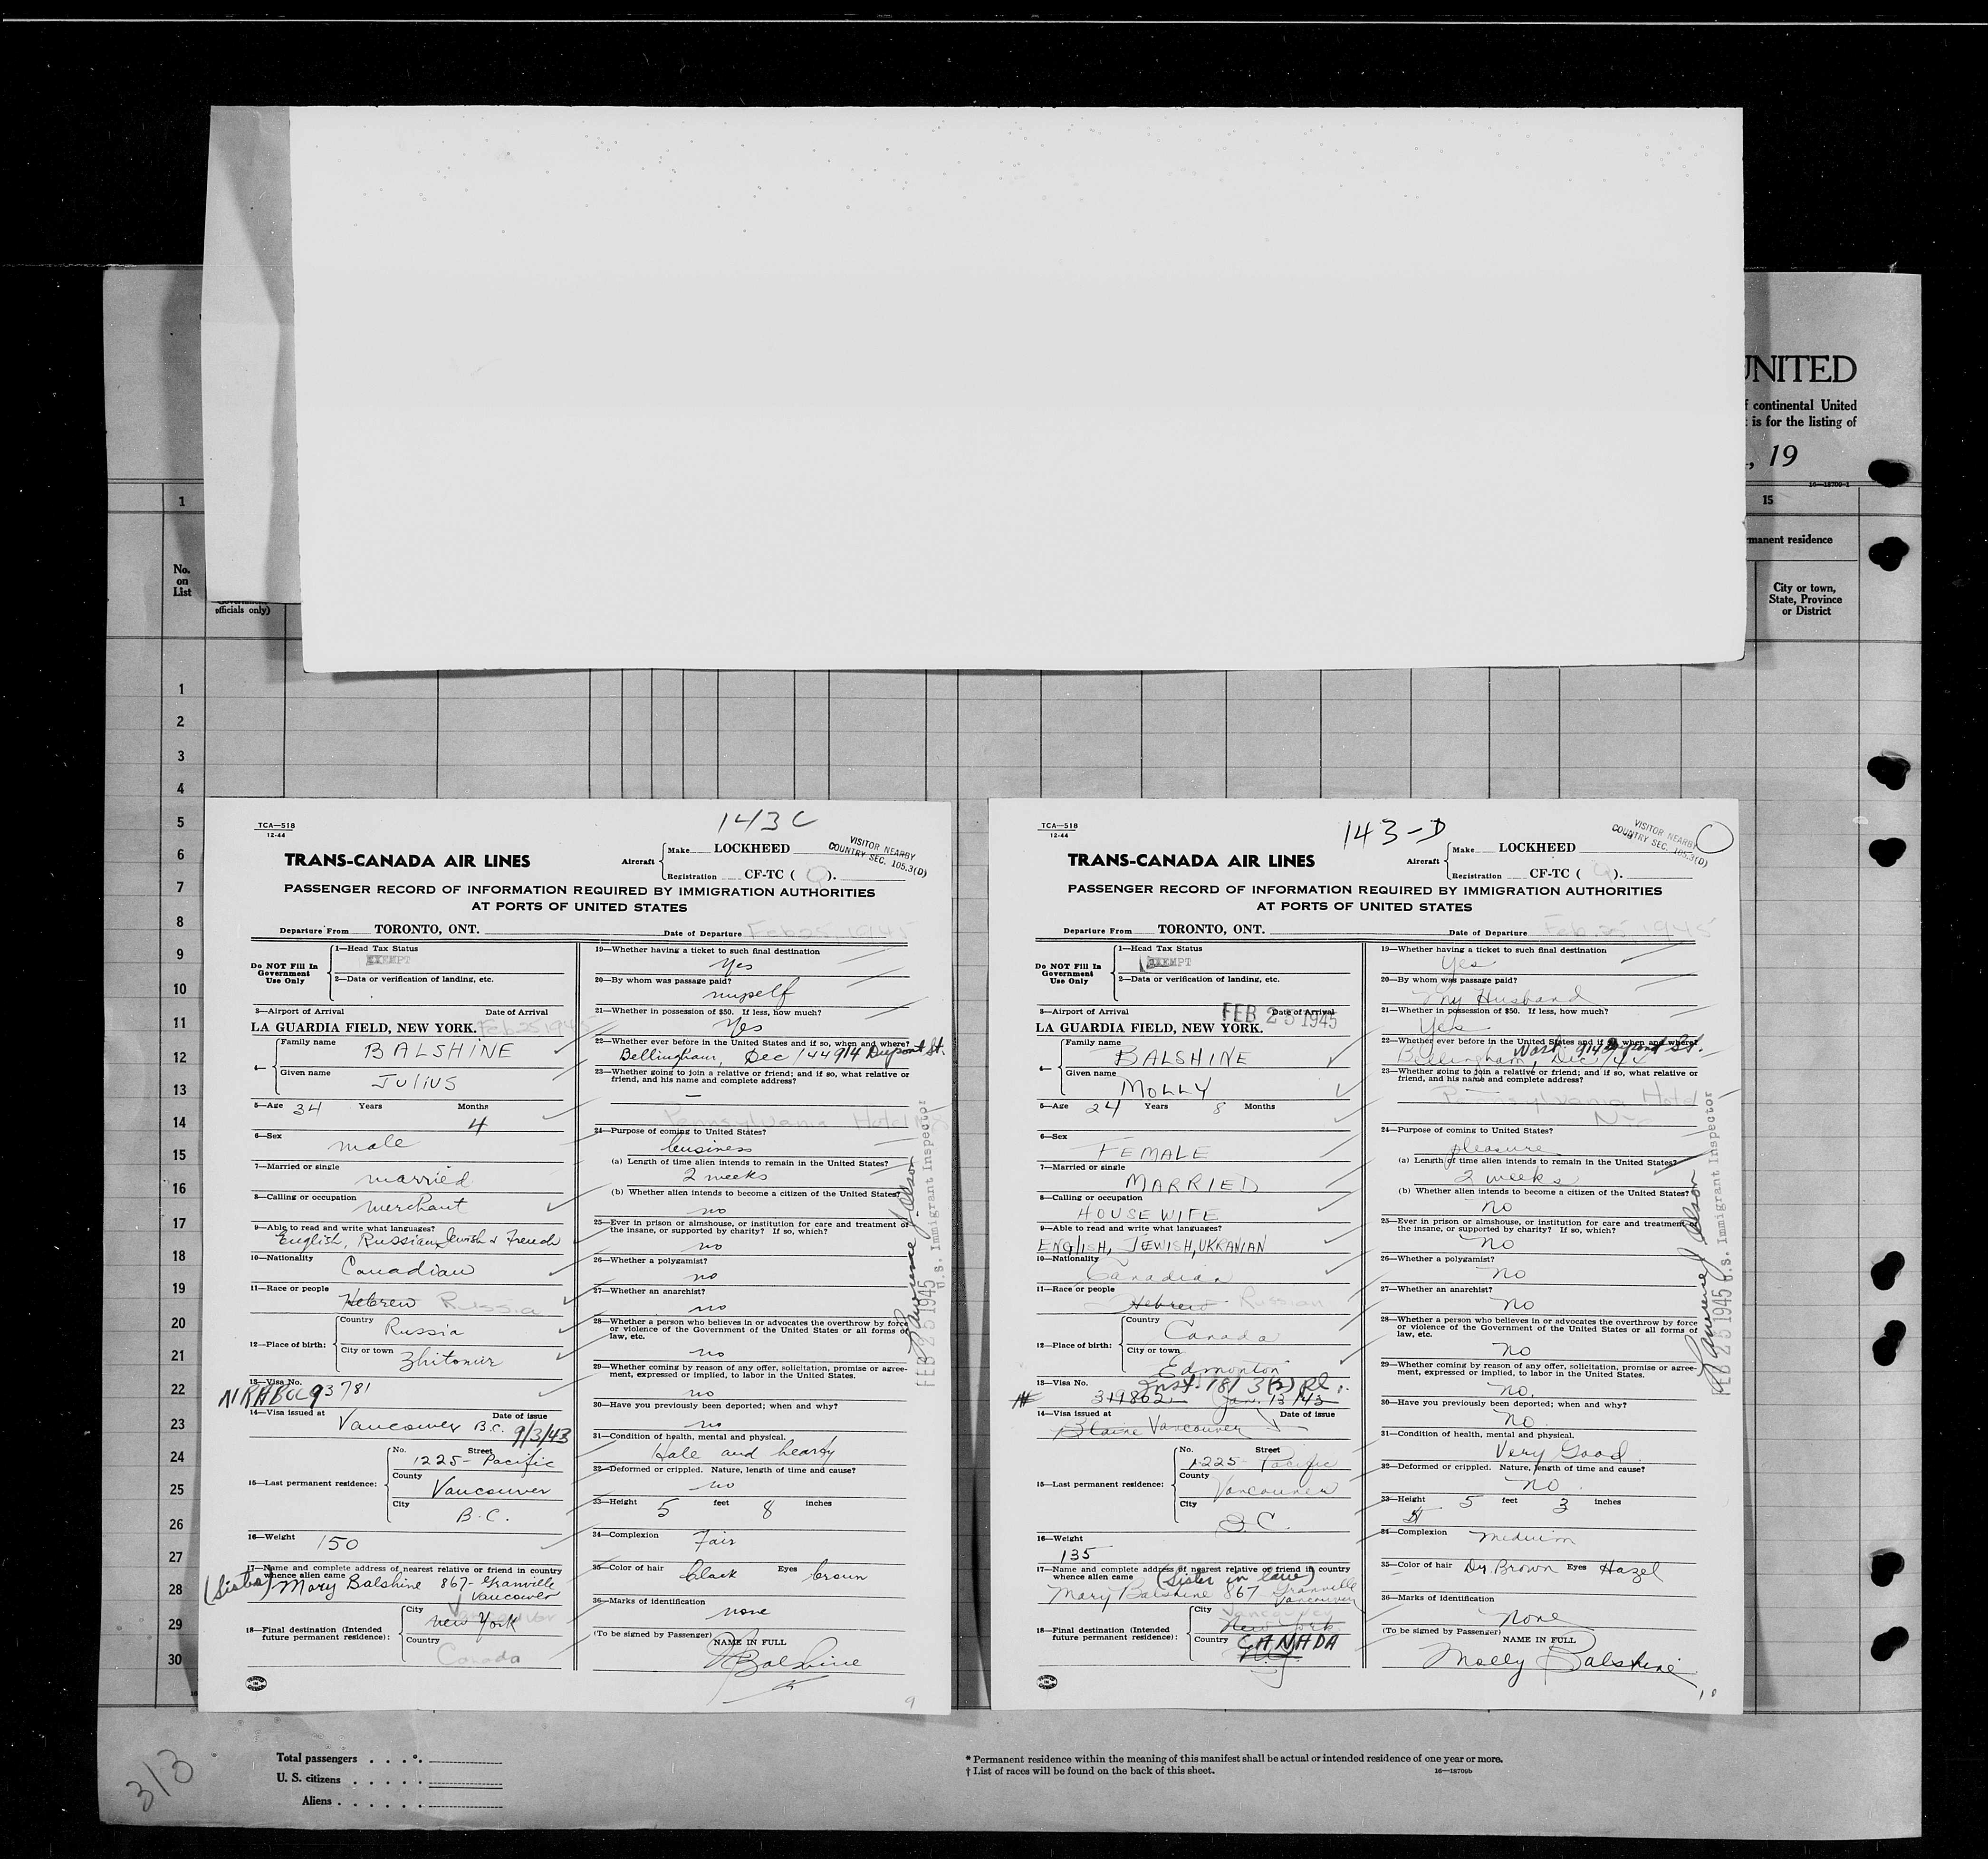 UNITED
f continental United
is for the listing of
, 19
16—18709-1
1
15
manent residence
No.
on
List
officials only)
City or town,
State, Province
or District
1
2
3
4
5
6
7
8
9
10
11
12
13
14
15
16
17
18
19
20
21
22
23
24
25
26
27
28
29
30
TCA—518
12-44
143C
TRANS-CANADA AIR LINES
Aircraft
Make LOCKHEED
Registration CF-TC ( Q ).
VISITOR NEARBY
COUNTRY SEC. 105.3(D)
PASSENGER RECORD OF INFORMATION REQUIRED BY IMMIGRATION AUTHORITIES
AT PORTS OF UNITED STATES
Departure From TORONTO, ONT. Date of Departure Feb 25 1945
Do NOT Fill In
Government
Use Only
1—Head Tax Status
EXEMPT
2—Data or verification of landing, etc.
3—Airport of Arrival Date of Arrival
LA GUARDIA FIELD, NEW YORK. Feb 25 1945
4— Family name BALSHINE
Given name JULIUS
5—Age 34 Years Months 4
6—Sex male
7—Married or single married
8—Calling or occupation merchant
9—Able to read and write what languages?
English, Russian, Jewish & French
10—Nationality Canadian
11—Race or people Hebrew Russia
12—Place of birth: Country Russia
City or town Zhitomir
13—Visa No.
93781
14—Visa issued at Vancouver B.C. Date of issue 9/3/43
15—Last permanent residence: No. Street
1225 - Pacific
County Vancouver
City B.C.
16—Weight 150
17—Name and complete address of nearest relative or friend in country
whence alien came
(Sister) Mary Balshine 867 - Granville
Vancouver
18—Final destination (Intended
future permanent residence):
City New York Vancouver
Country Canada
19—Whether having a ticket to such final destination
Yes
20—By whom was passage paid?
myself
21—Whether in possession of $50. If less, how much?
Yes
22—Whether ever before in the United States and if so, when and where?
Bellingham, Dec /44 914 Dupont St.
23—Whether going to join a relative or friend; and if so, what relative or
friend, and his name and complete address?
—
Pennsylvania Hotel
24—Purpose of coming to United States?
business
(a) Length of time alien intends to remain in the United States?
2 weeks
(b) Whether alien intends to become a citizen of the United States?
no
25—Ever in prison or almshouse, or institution for care and treatment of
the insane, or supported by charity? If so, which?
no
26—Whether a polygamist?
no
27—Whether an anarchist?
no
28—Whether a person who believes in or advocates the overthrow by force
or violence of the Government of the United States or all forms of
law, etc.
no
29—Whether coming by reason of any offer, solicitation, promise or agree-
ment, expressed or implied, to labor in the United States.
no
30—Have you previously been deported; when and why?
no
31—Condition of health, mental and physical.
Hale and hearty
32—Deformed or crippled. Nature, length of time and cause?
no
33—Height 5 feet 8 inches
34—Complexion Fair
35—Color of hair black Eyes brown
36—Marks of identification
none
(To be signed by Passenger)
NAME IN FULL
J Balshine
9
FEB 25 1945
U.S. Immigrant Inspector
TCA—518
12-44
143-D
TRANS-CANADA AIR LINES
Aircraft
Make LOCKHEED
Registration CF-TC ( Q ).
VISITOR NEARBY
COUNTRY SEC. 105.3(D)
PASSENGER RECORD OF INFORMATION REQUIRED BY IMMIGRATION AUTHORITIES
AT PORTS OF UNITED STATES
Departure From TORONTO, ONT. Date of Departure Feb. 25, 1945
Do NOT Fill In
Government
Use Only
1—Head Tax Status
EXEMPT
2—Data or verification of landing, etc.
3—Airport of Arrival Date of Arrival
LA GUARDIA FIELD, NEW YORK. FEB 25 1945
4— Family name BALSHINE
Given name MOLLY
5—Age 24 Years 8 Months
6—Sex FEMALE
7—Married or single MARRIED
8—Calling or occupation HOUSEWIFE
9—Able to read and write what languages?
ENGLISH, JEWISH, UKRANIAN
10—Nationality Canadian
11—Race or people Hebrew Russian
12—Place of birth: Country Canada
City or town Edmonton
13—Visa No.
319802 Jan. 13/43
14—Visa issued at Date of issue
Blaine Vancouver
15—Last permanent residence: No. Street
1225 Pacific
County Vancouver
City B.C.
16—Weight
135
17—Name and complete address of nearest relative or friend in country
whence alien came (Sister in law)
Mary Balshine 867 Granville
Vancouver
18—Final destination (Intended
future permanent residence):
City Vancouver
New York
Country CANADA
N.Y.
19—Whether having a ticket to such final destination
Yes
20—By whom was passage paid?
My Husband
21—Whether in possession of $50. If less, how much?
Yes
22—Whether ever before in the United States and if so, when and where?
Bellingham, Wash. 914 Dupont St. Dec /44
23—Whether going to join a relative or friend; and if so, what relative or
friend, and his name and complete address?
Pennsylvania Hotel
24—Purpose of coming to United States?
pleasure
(a) Length of time alien intends to remain in the United States?
2 weeks
(b) Whether alien intends to become a citizen of the United States?
no
25—Ever in prison or almshouse, or institution for care and treatment of
the insane, or supported by charity? If so, which?
no
26—Whether a polygamist?
no
27—Whether an anarchist?
no
28—Whether a person who believes in or advocates the overthrow by force
or violence of the Government of the United States or all forms of
law, etc.
no
29—Whether coming by reason of any offer, solicitation, promise or agree-
ment, expressed or implied, to labor in the United States.
no.
30—Have you previously been deported; when and why?
no.
31—Condition of health, mental and physical.
Very Good
32—Deformed or crippled. Nature, length of time and cause?
no.
33—Height 5 feet 3 inches
34—Complexion medium
35—Color of hair Dk. Brown Eyes Hazel
36—Marks of identification
none
(To be signed by Passenger)
NAME IN FULL
Molly Balshine
10
FEB 25 1945
U.S. Immigrant Inspector
313
Total passengers
U. S. citizens
Aliens
* Permanent residence within the meaning of this manifest shall be actual or intended residence of one year or more.
† List of races will be found on the back of this sheet.
16—18709b